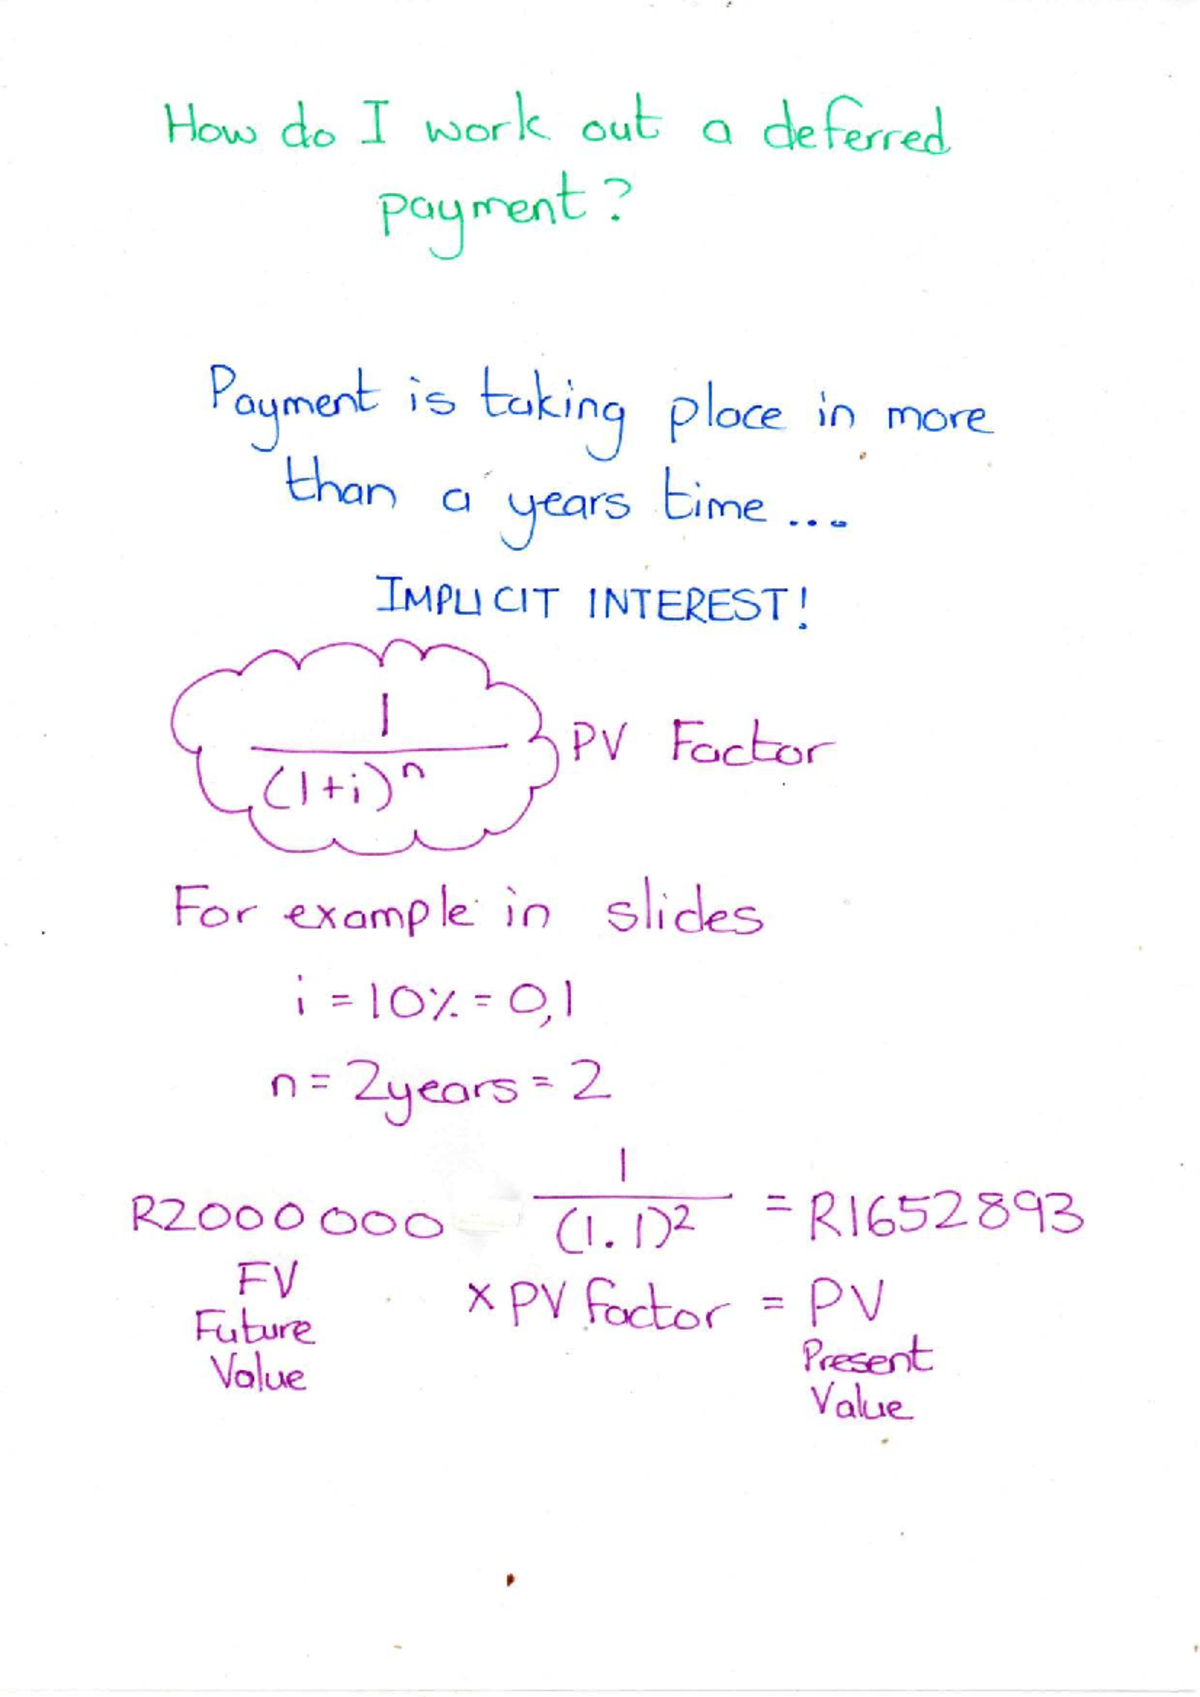 How do I work out a deferred
payment?
Payment is taking place in more
than a years time ....
IMPLICIT INTEREST!
1
(1+i)^n
PV Factor
For example in slides
i = 10% = 0,1
n = 2years = 2
R2000 000 1/(1.1)² = R1652893
FV × PV factor = PV
Future Value
Present Value